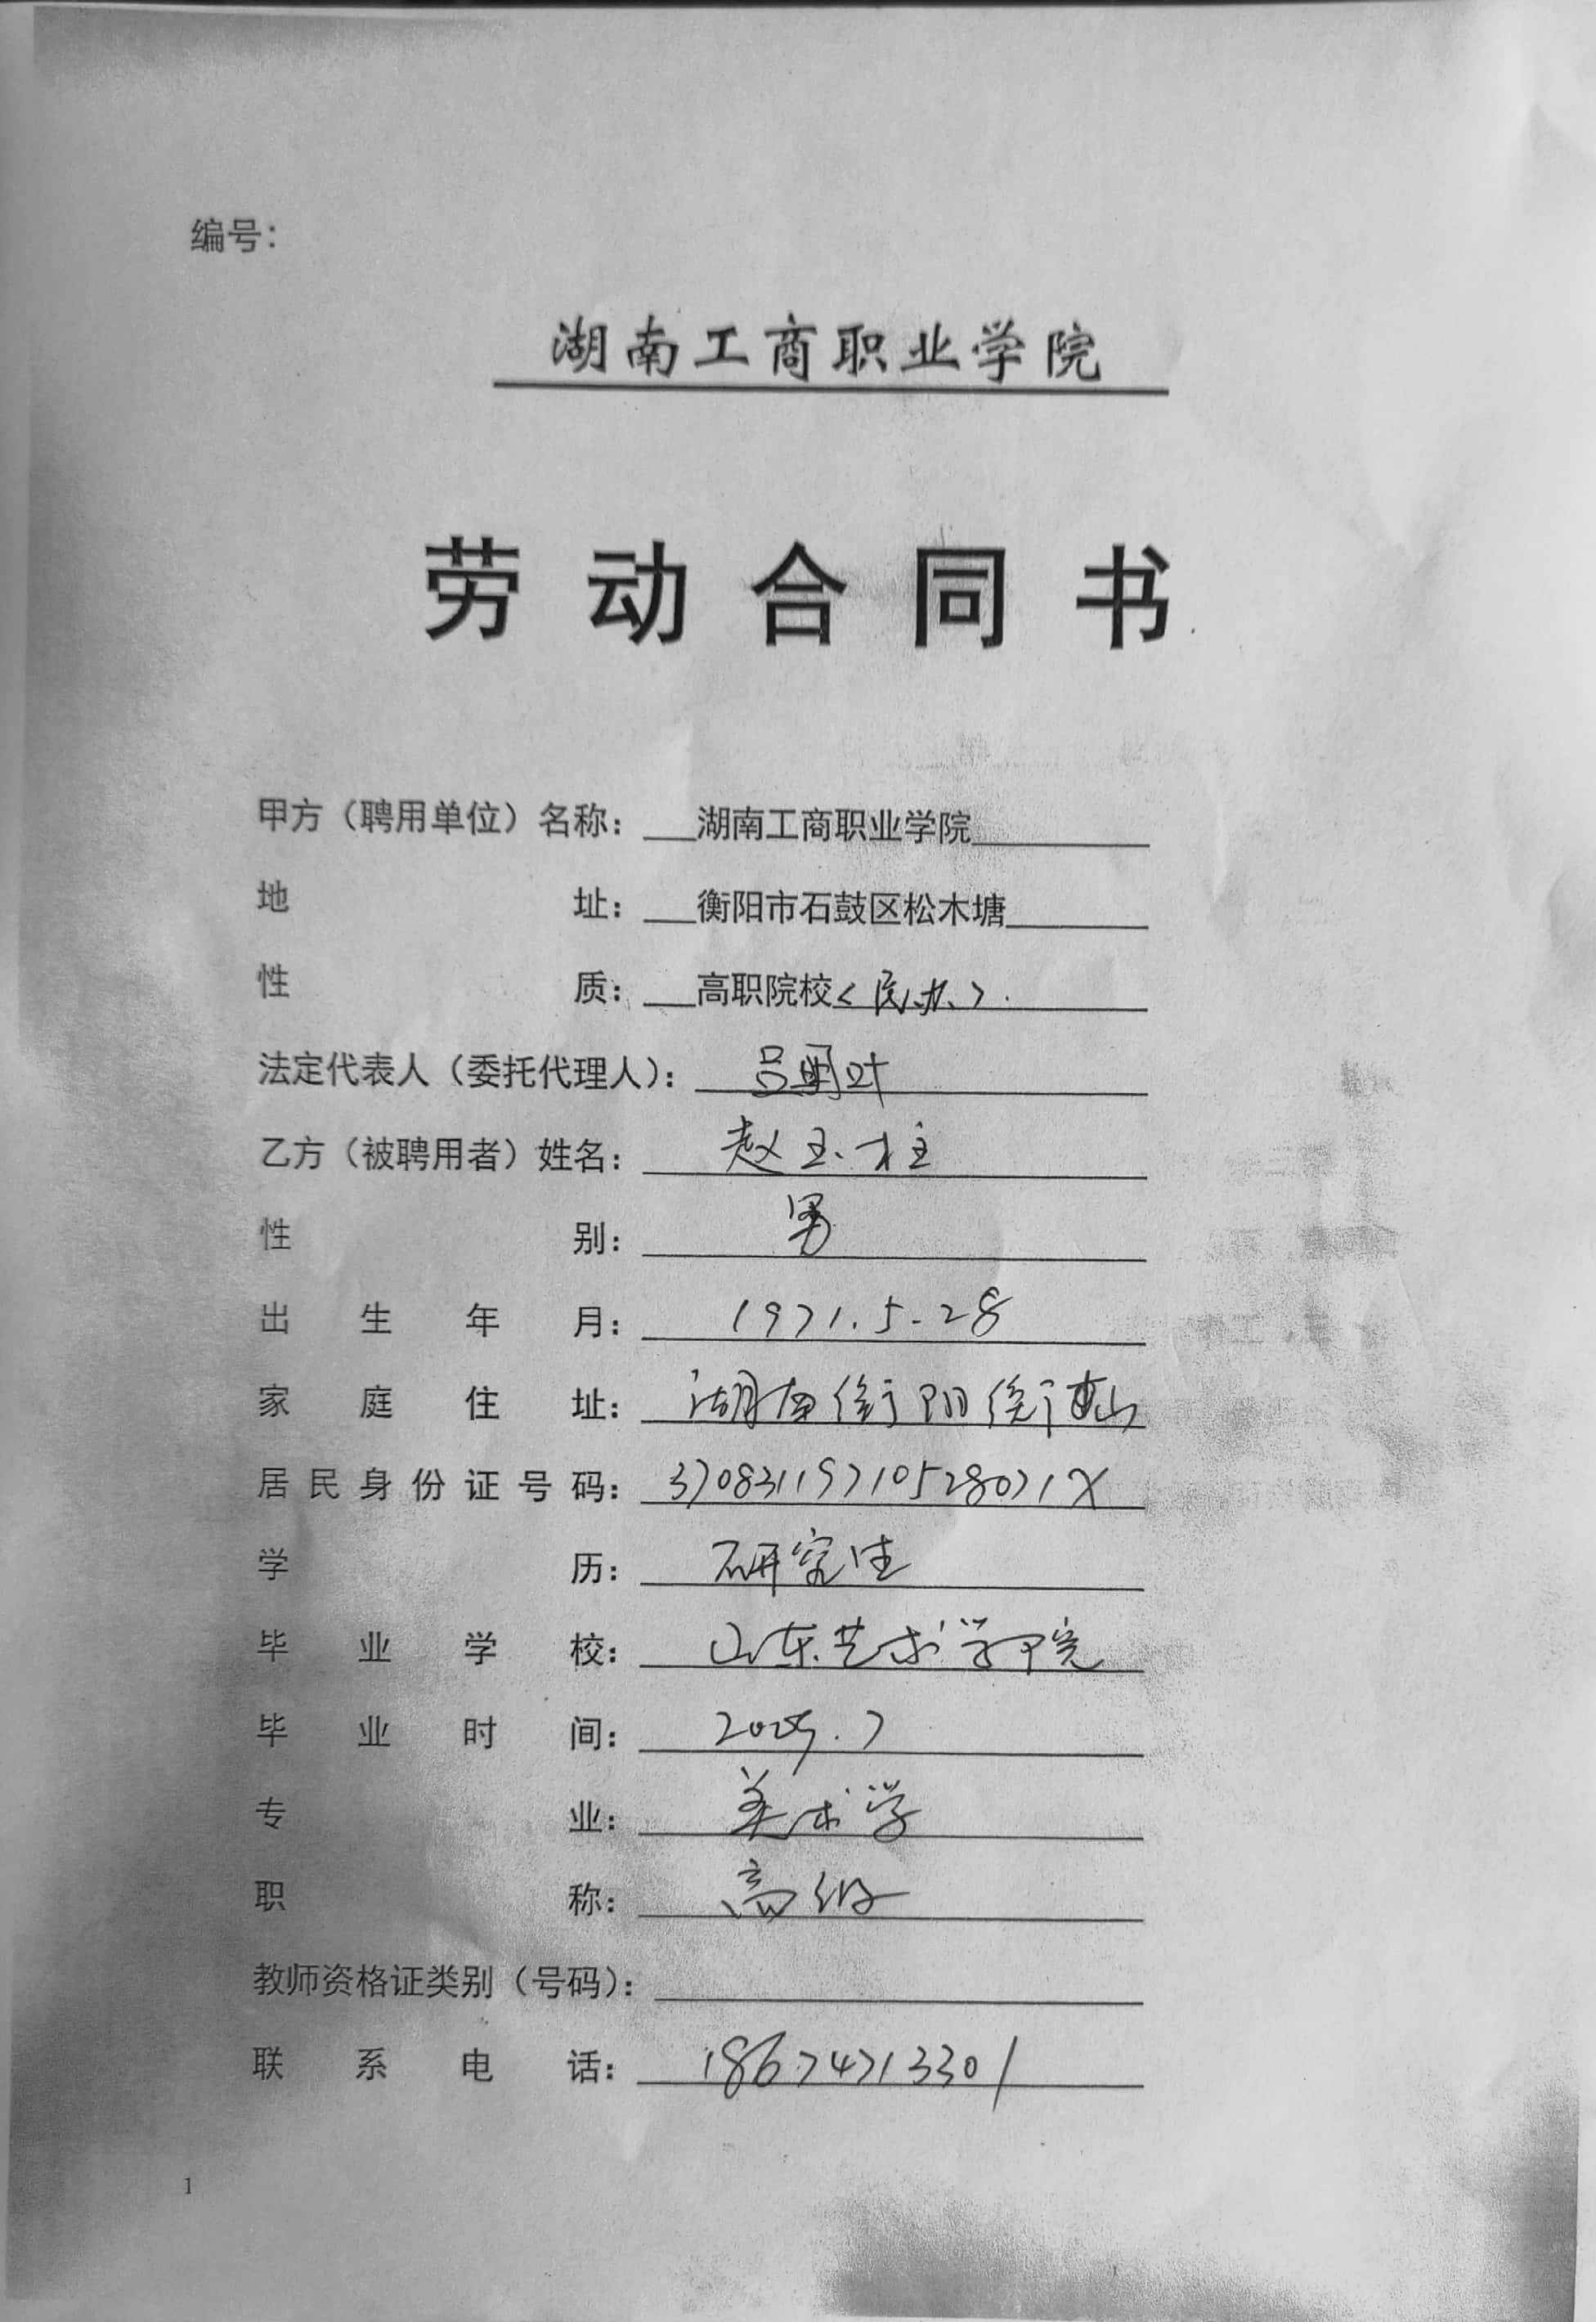 编号：
湖南工商职业学院
劳动合同书
甲方（聘用单位）名称：湖南工商职业学院
地址：衡阳市石鼓区松木塘
性质：高职院校<民办>.
法定代表人（委托代理人）：吕明叶
乙方（被聘用者）姓名：赵玉柱
性别：男
出生年月：1971.5.28
家庭住址：湖南衡阳衡山
居民身份证号码：37083119710528071X
学历：研究生
毕业学校：山东艺术学院
毕业时间：
专业：美术学
职称：高级
教师资格证类别（号码）：
联系电话：18674713301
1